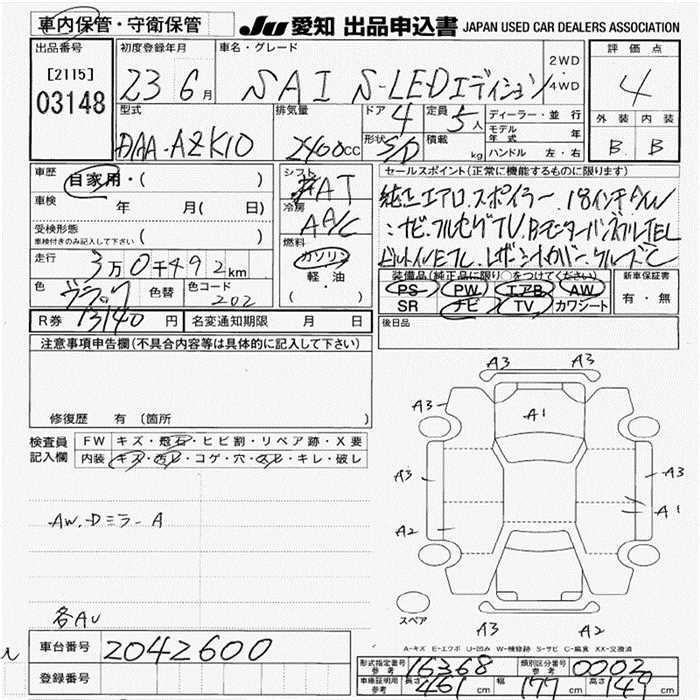 車内保管・守衛保管 JU 愛知 出品申込書 JAPAN USED CAR DEALERS ASSOCIATION
出品番号 初度登録年月 車名・グレード 2WD・4WD 評価点
[2115]
03148
23 6月 SAI S-LEDエディション 4
型式 排気量 ドア 4 定員 5人 ディーラー・並行 外装 内装
DAA-AZK10 2400cc 形状 SD 積載 kg モデル年式 年 B B
ハンドル 左・右
車歴 自家用・( ) シフト FAT セールスポイント(正常に機能するものに限ります)
車検 年 月( 日) 冷房 AAC 純正エアロ.スポイラー.18インチAW
受検形態 ( ) ナビ.フルセグTV.Bモニター
車検付きのみ記入して下さい
燃料 ガソリン・軽・油 ( )
走行 3万0千492km
装備品(純正品に限り○をつけてください) 新車保証書
PS PW エアB AW 有・無
SR ナビ TV カワシート
色 ブラック 色替 色コード 202
R券 13140円 名変通知期限 月 日 後日品
注意事項申告欄(不具合内容等は具体的に記入して下さい)
修復歴 有 (箇所
検査員記入欄 FW キズ・飛石・ヒビ割・リペア跡・X要
内装 キズ・汚レ・コゲ・穴・スレ・キレ・破レ
A3 A3
A3 A1
A3 A3
A1
A2
AW.Dミラー A
スペア
A3 A2
各AU
A-キズ E-エクボ U-凹み W-補修跡 S-サビ C-腐食 XX-交換済
車台番号 2042600
登録番号
形式指定番号 参考 16368 類別区分番号 参考 0002
車検証明用 参考 長さ 461cm 幅 177cm 高さ 149cm